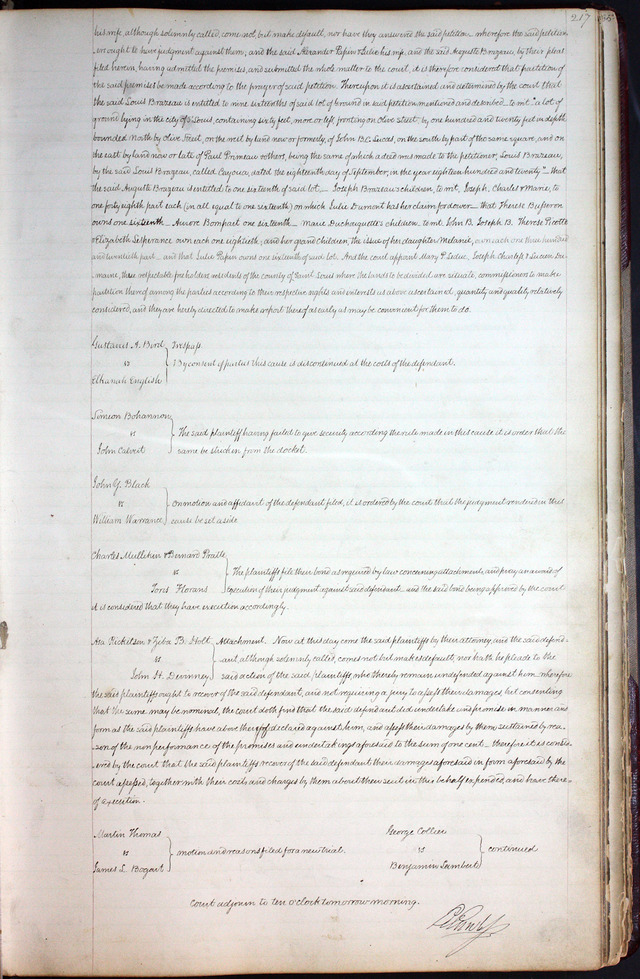 217
his wife, although solemnly called, come not, but make default, nor have they answered the said petition, wherefore the said petition-
er ought to have judgment against them, and the said Alexander Papin & Julie his wife, and the said Auguste Brazeau, by their pleas
filed herein, having admitted the premises, and submitted the whole matter to the court, it is therefore considered that partition of
the said premises be made according to the prayer of said petition. Thereupon it is ascertained and determined by the court that
the said Louis Brazeau is entitled to nine sixteenths of said lot of ground in said petition mentioned and described_ to wit "a lot of
ground lying in the city of St Louis, containing sixty feet, more or less, fronting on Olive Street, by one hundred and twenty feet in depth
bounded North by Olive Street, on the west by land now or formerly, of John B. C. Lucas, on the south by part of the same square, and on
the east by land now or late of Paul Primeau & others, being the same of which a deed was made to the petitioner, Louis Brazeau,
by the said Louis Brazeau, called Cayouca, dated the eighteenth day of September, in the year eighteen hundred and twenty"_ that
the said Auguste Brazeau is entitled to one sixteenth of said lot_ Joseph Brazeau's children, to wit, Joseph, Charles & Marie, to
one forty eighth part each (in all equal to one sixteenth) on which Julie Dumont has her claim for dower_ that Therese Buffron
owns one sixteenth_ Aurore Bompart one sixteenth_ Marie Duchouquette's children to wit John B. Joseph B. Therese Picotte
& Elizabeth Lesperance own each one eightieth, and her grand children, the issue of her daughter Melanie, own each one three hundred
and twentieth part_ and that Julie Papin owns one sixteenth of said lot. And the court appoint Mary P. Leduc, Joseph Charless &
mans, three respectable freeholders residents of the county of Saint Louis where the lands to be divided are situate, commissioners to make
partition thereof among the parties according to their respective rights and interests as above ascertained, quantity and quality relatively
considered, and they are hereby directed to make report thereof as early as may be convenient for them to do.
Gustavus A. Bird } Trespass.
vs } By consent of parties this cause is discontinued at the costs of the defendant.
Elkanah English
Simeon Bohannon
vs } The said plaintiff having failed to give security according the rule made in this cause it is order that the
John Calvert } same be stricken from the docket.
John Y. Black
vs } on motion and affidavit of the defendant filed, it is ordered by the court that the judgment rendered in this
William Warrance } cause be set aside.
Charles Mulliken & Bernard Pratte
vs } The plaintiffs file their bond as required by law concerning attachments, and pray an award of
Florans } execution of their judgment against said defendant_ and the said bond being approved by the court
it is considered that they have execution accordingly.
Asa Pickelson & Ziba B. Holt } Attachment. Now at this day come the said plaintiffs by their attorney, and the said defend-
vs } ant, although solemnly called, comes not but makes default, nor hath he plead to the
John H. Devinney } said action of the said plaintiffs, who thereby remain undefended against him_ wherefore
the said plaintiffs ought to recover of the said defendant, and not requiring a jury to assess their damages, but consenting
that the same may be nominal, the court doth find that the said defendant did undertake and promise in manner and
form as the said plaintiffs have above thereof declared against him, and assess their damages by them sustained by rea-
son of the nonperformance of the promises and undertakings aforesaid to the sum of one cent_ therefore it is consid-
ered by the court that the said plaintiffs recover of the said defendant their damages aforesaid in form aforesaid by the
court assessed, together with their costs and charges by them about their suit in this behalf expended, and have there-
of execution.
Martin Thomas
vs } motion and reasons filed for a new trial.
James L. Bogart
George Collier
vs } continued
Benjamin Lambert
Court adjourn to ten o'clock tomorrow morning.